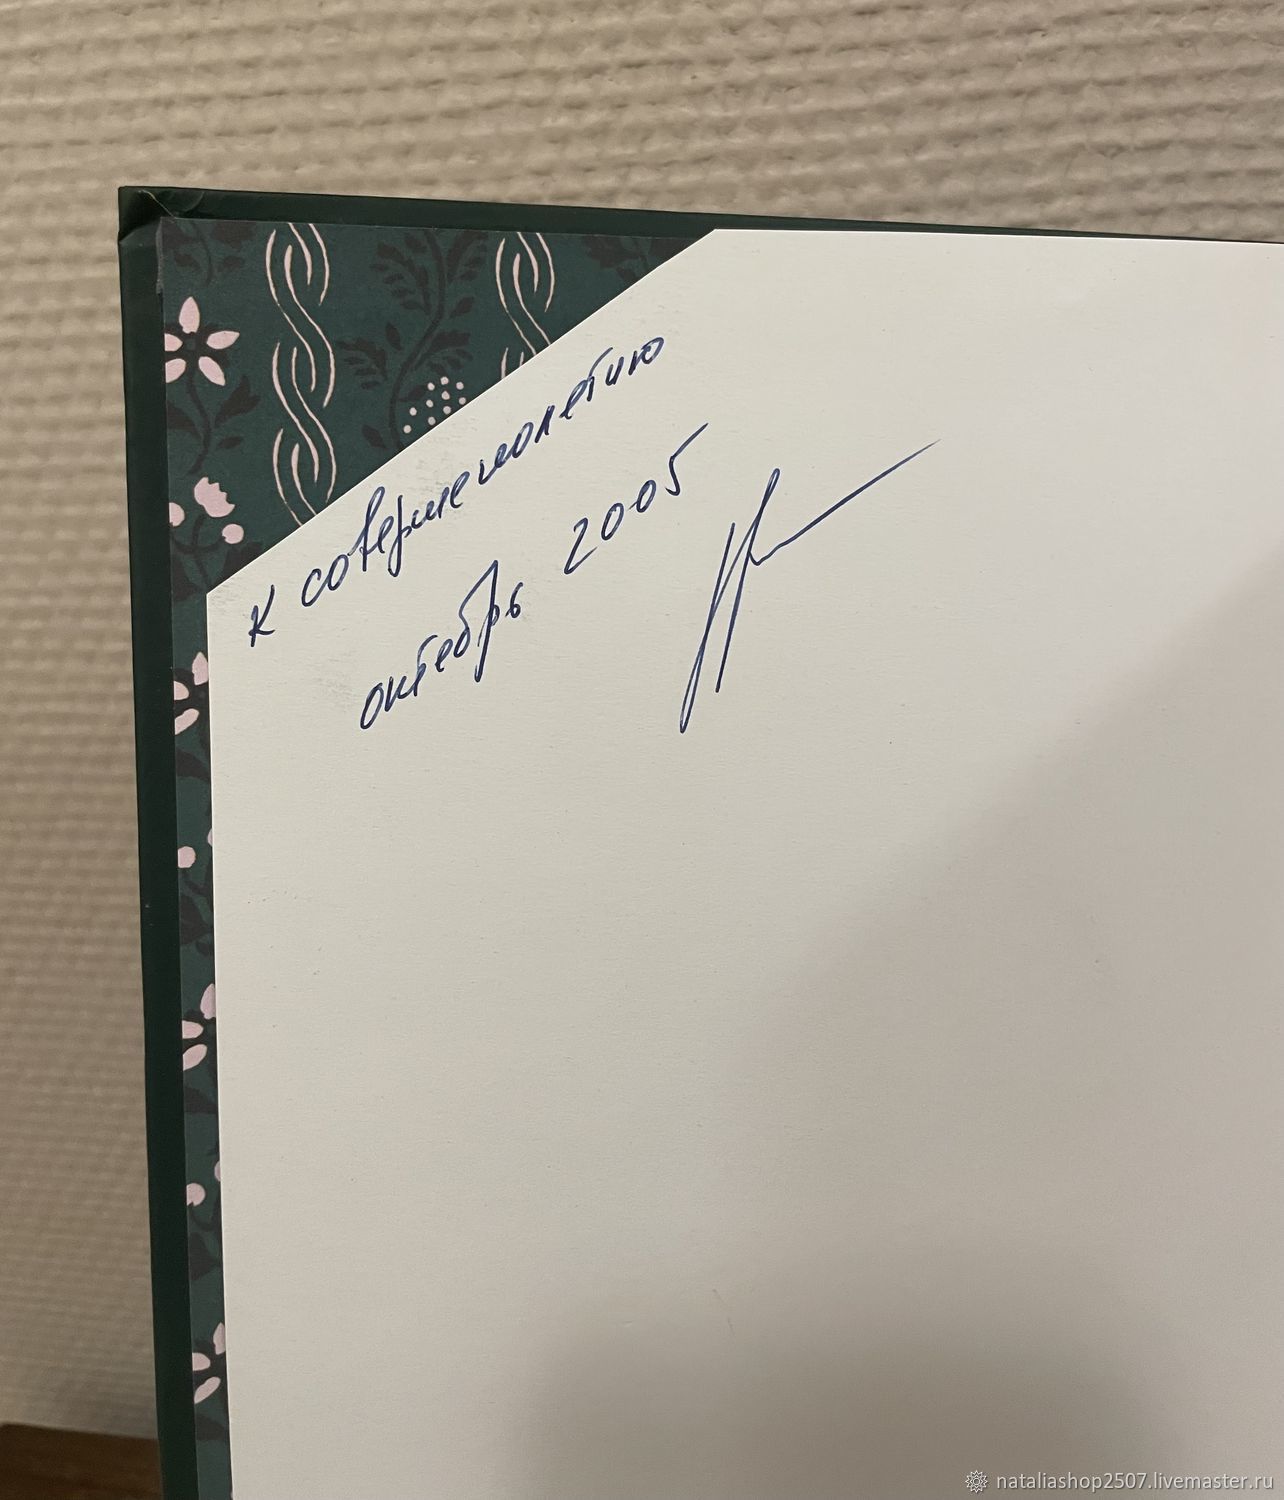 к совершенолетию
октебрь 2005
nataliashop2507.livemaster.ru